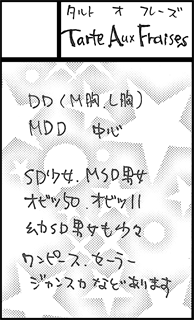 タルト オ フレーズ
Tarte Aux Fraises
DD(M胸、L胸)
MDD 中心
SD少女、MSD男女
オビツ50、オビツ11
幼SD男女も少々
ワンピース、セーラー
ジャンスカなどあります